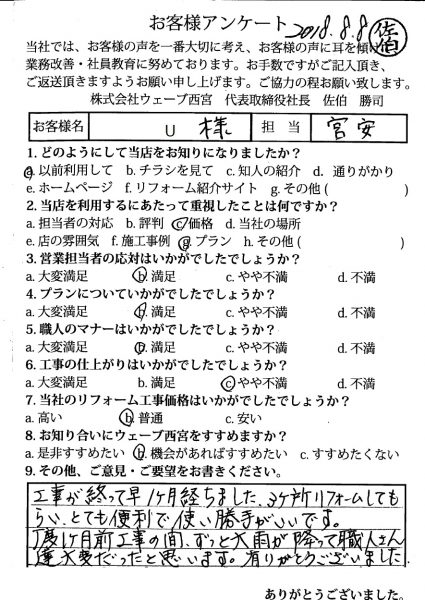 お客様アンケート 2018.8.8 佐伯
当社では、お客様の声を一番大切に考え、お客様の声に耳を傾け
業務改善・社員教育に努めております。お手数ですがご記入頂き、
ご返送頂きますようお願い申し上げます。ご協力の程お願い致します。
株式会社ウェーブ西宮 代表取締役社長 佐伯 勝司
お客様名 U 様 担当 宮安
1. どのようにして当店をお知りになりましたか？
a. 以前利用して b. チラシを見て c. 知人の紹介 d. 通りがかり
e. ホームページ f. リフォーム紹介サイト g. その他( )
2. 当店を利用するにあたって重視したことは何ですか？
a. 担当者の対応 b. 評判 c. 価格 d. 当社の場所
e. 店の雰囲気 f. 施工事例 g. プラン h. その他( )
3. 営業担当者の応対はいかがでしたでしょうか？
a. 大変満足 b. 満足 c. やや不満 d. 不満
4. プランについていかがでしたでしょうか？
a. 大変満足 b. 満足 c. やや不満 d. 不満
5. 職人のマナーはいかがでしたでしょうか？
a. 大変満足 b. 満足 c. やや不満 d. 不満
6. 工事の仕上がりはいかがでしたでしょうか？
a. 大変満足 b. 満足 c. やや不満 d. 不満
7. 当社のリフォーム工事価格はいかがでしたでしょうか？
a. 高い b. 普通 c. 安い
8. お知り合いにウェーブ西宮をすすめますか？
a. 是非すすめたい b. 機会があればすすめたい c. すすめたくない
9. その他、ご意見・ご要望をお書きください。
工事が終って早1ヶ月経ちました、3ケ所リフォームしても
らい、とても便利で使い勝手がいいです。
丁度1ヶ月前工事の間、ずっと大雨が降って職人さん
達大変だったと思います。有りがとうございました
ありがとうございました。